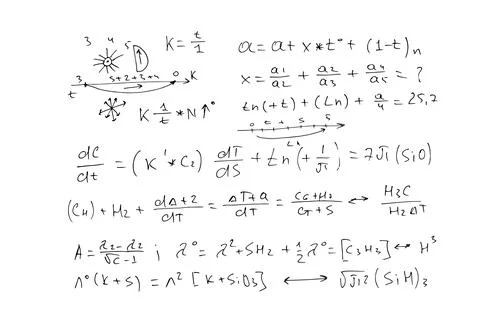 3 4 5 K = t/1
a = a + x * t° + (1-t)n
3 5+2+3+4 0 K
t
x = a1/a2 + a2/a3 + a4/a5 = ?
K 1/t * N ↑°
tn(+t) + (tn) + a/4 = 25,7
0 t + 5 5
dC/dt = (K' * C2) dT/dS + tn(+ 1/√1) = 7√1 (SiO)
(C4) + H2 + dΔ+2/dT = ΔT+a/dT = C6+H2/C7+S ↔ H3C/H2ΔT
A = λ2-λ2/√C-1 ; λ° = λ² + SH2 + 1/2 λ° = [C3H3] ↔ H³
Λ°(K+S) = Λ² [K+SiO3] ↔ √J1² (SiH)3